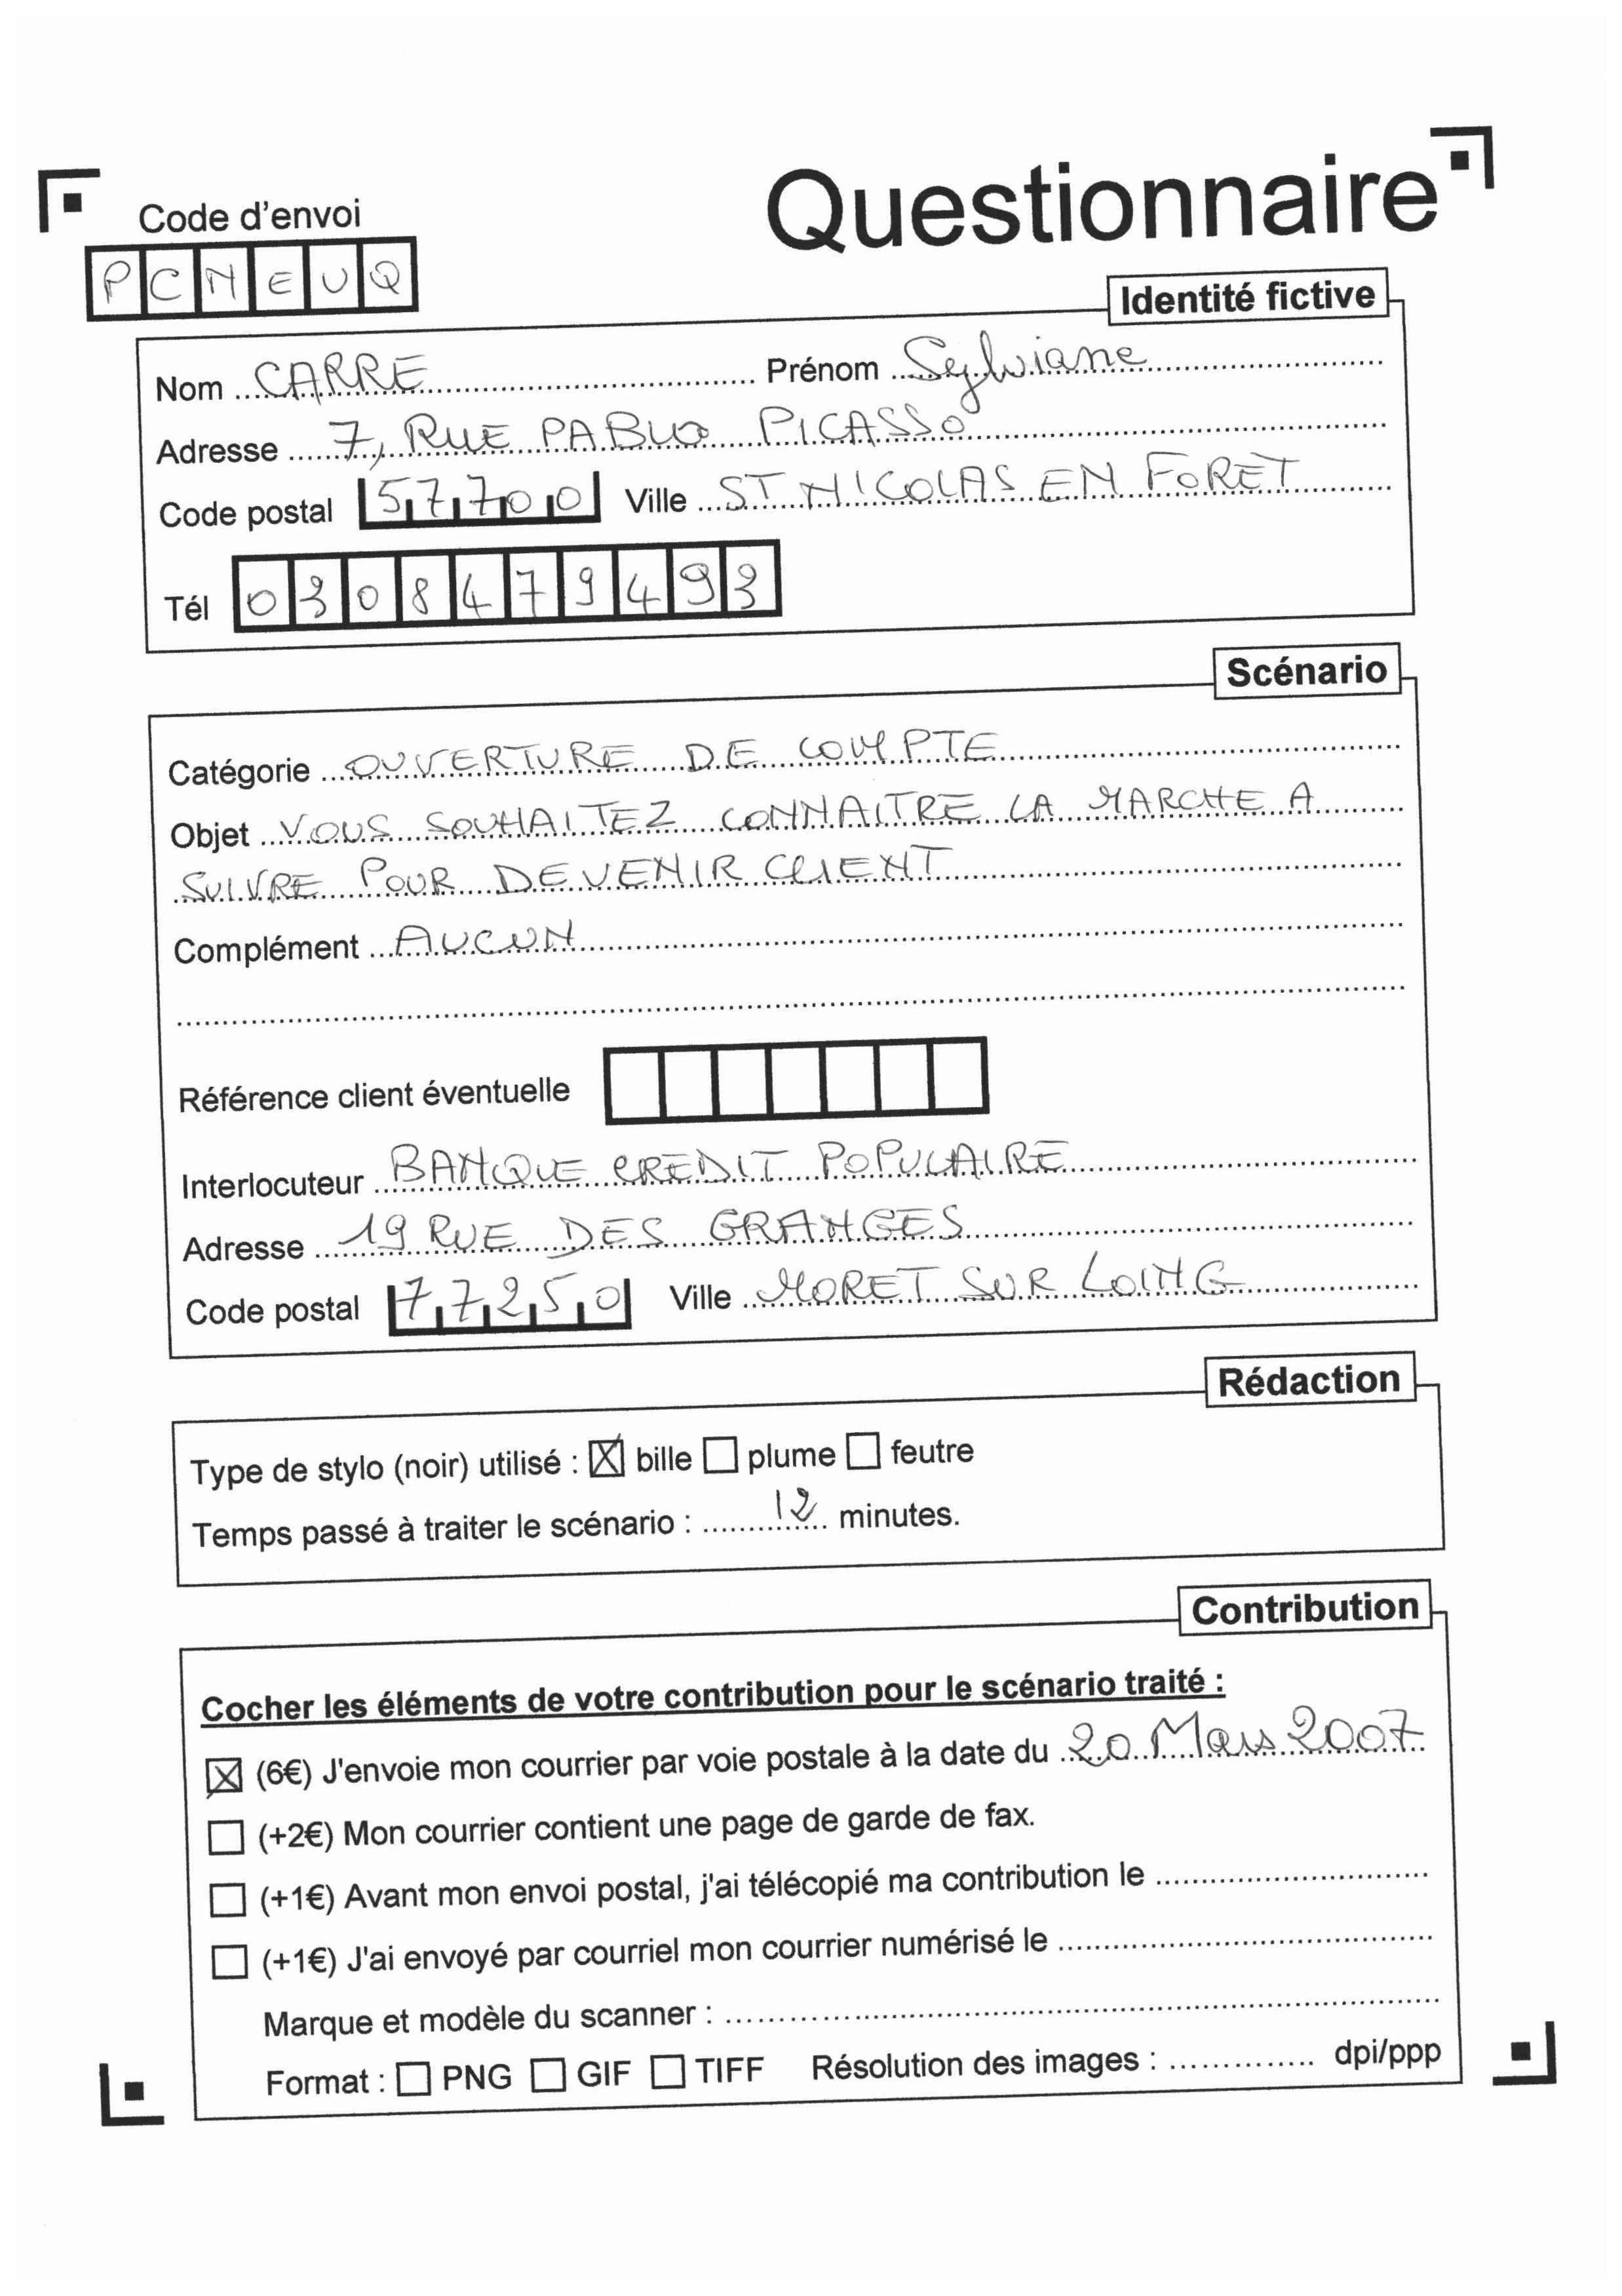 Questionnaire
Code d'envoi
PCNEUQ
Identité fictive
Nom CARRE Prénom Sylviane
Adresse 7, RUE PABLO PICASSO
Code postal 57700 Ville ST NICOLAS EN FORET
Tél 0308479493
Scénario
Catégorie OUVERTURE DE COMPTE
Objet VOUS SOUHAITEZ CONNAITRE LA MARCHE A
SUIVRE POUR DEVENIR CLIENT
Complément AUCUN
Référence client éventuelle
Interlocuteur BANQUE CREDIT POPULAIRE
Adresse 19 RUE DES GRANGES
Code postal 77250 Ville MORET SUR LOING
Rédaction
Type de stylo (noir) utilisé : ☒ bille ☐ plume ☐ feutre
Temps passé à traiter le scénario : 12 minutes.
Contribution
Cocher les éléments de votre contribution pour le scénario traité :
☒ (6€) J'envoie mon courrier par voie postale à la date du 20 Mars 2007
☐ (+2€) Mon courrier contient une page de garde de fax.
☐ (+1€) Avant mon envoi postal, j'ai télécopié ma contribution le
☐ (+1€) J'ai envoyé par courriel mon courrier numérisé le
Marque et modèle du scanner :
Format : ☐ PNG ☐ GIF ☐ TIFF Résolution des images : dpi/ppp